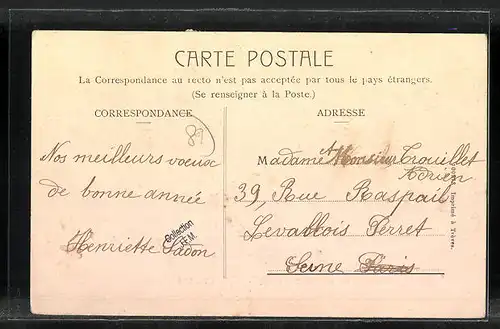 CARTE POSTALE
La Correspondance au recto n'est pas acceptée par tous le pays étrangers.
(Se renseigner à la Poste.)
CORRESPONDANCE
89
Nos meilleurs voeux
de bonne année
Henriette
Collection
F.M.
ADRESSE
Madame Monsieur Trouillet
Adrien
39, Rue Raspail
Levallois Perret
Seine Paris
Imprimé à Trèves.